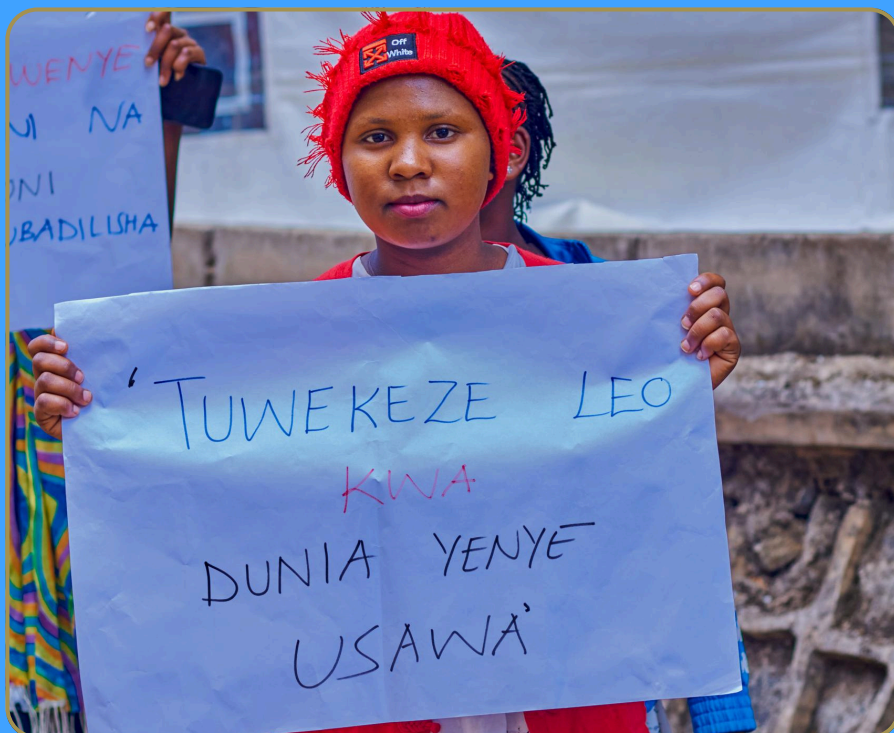 WENYE
NI NA
UBADILISHA
Off
White
'TUWEKEZE LEO
KWA
DUNIA YENYE
USAWA'